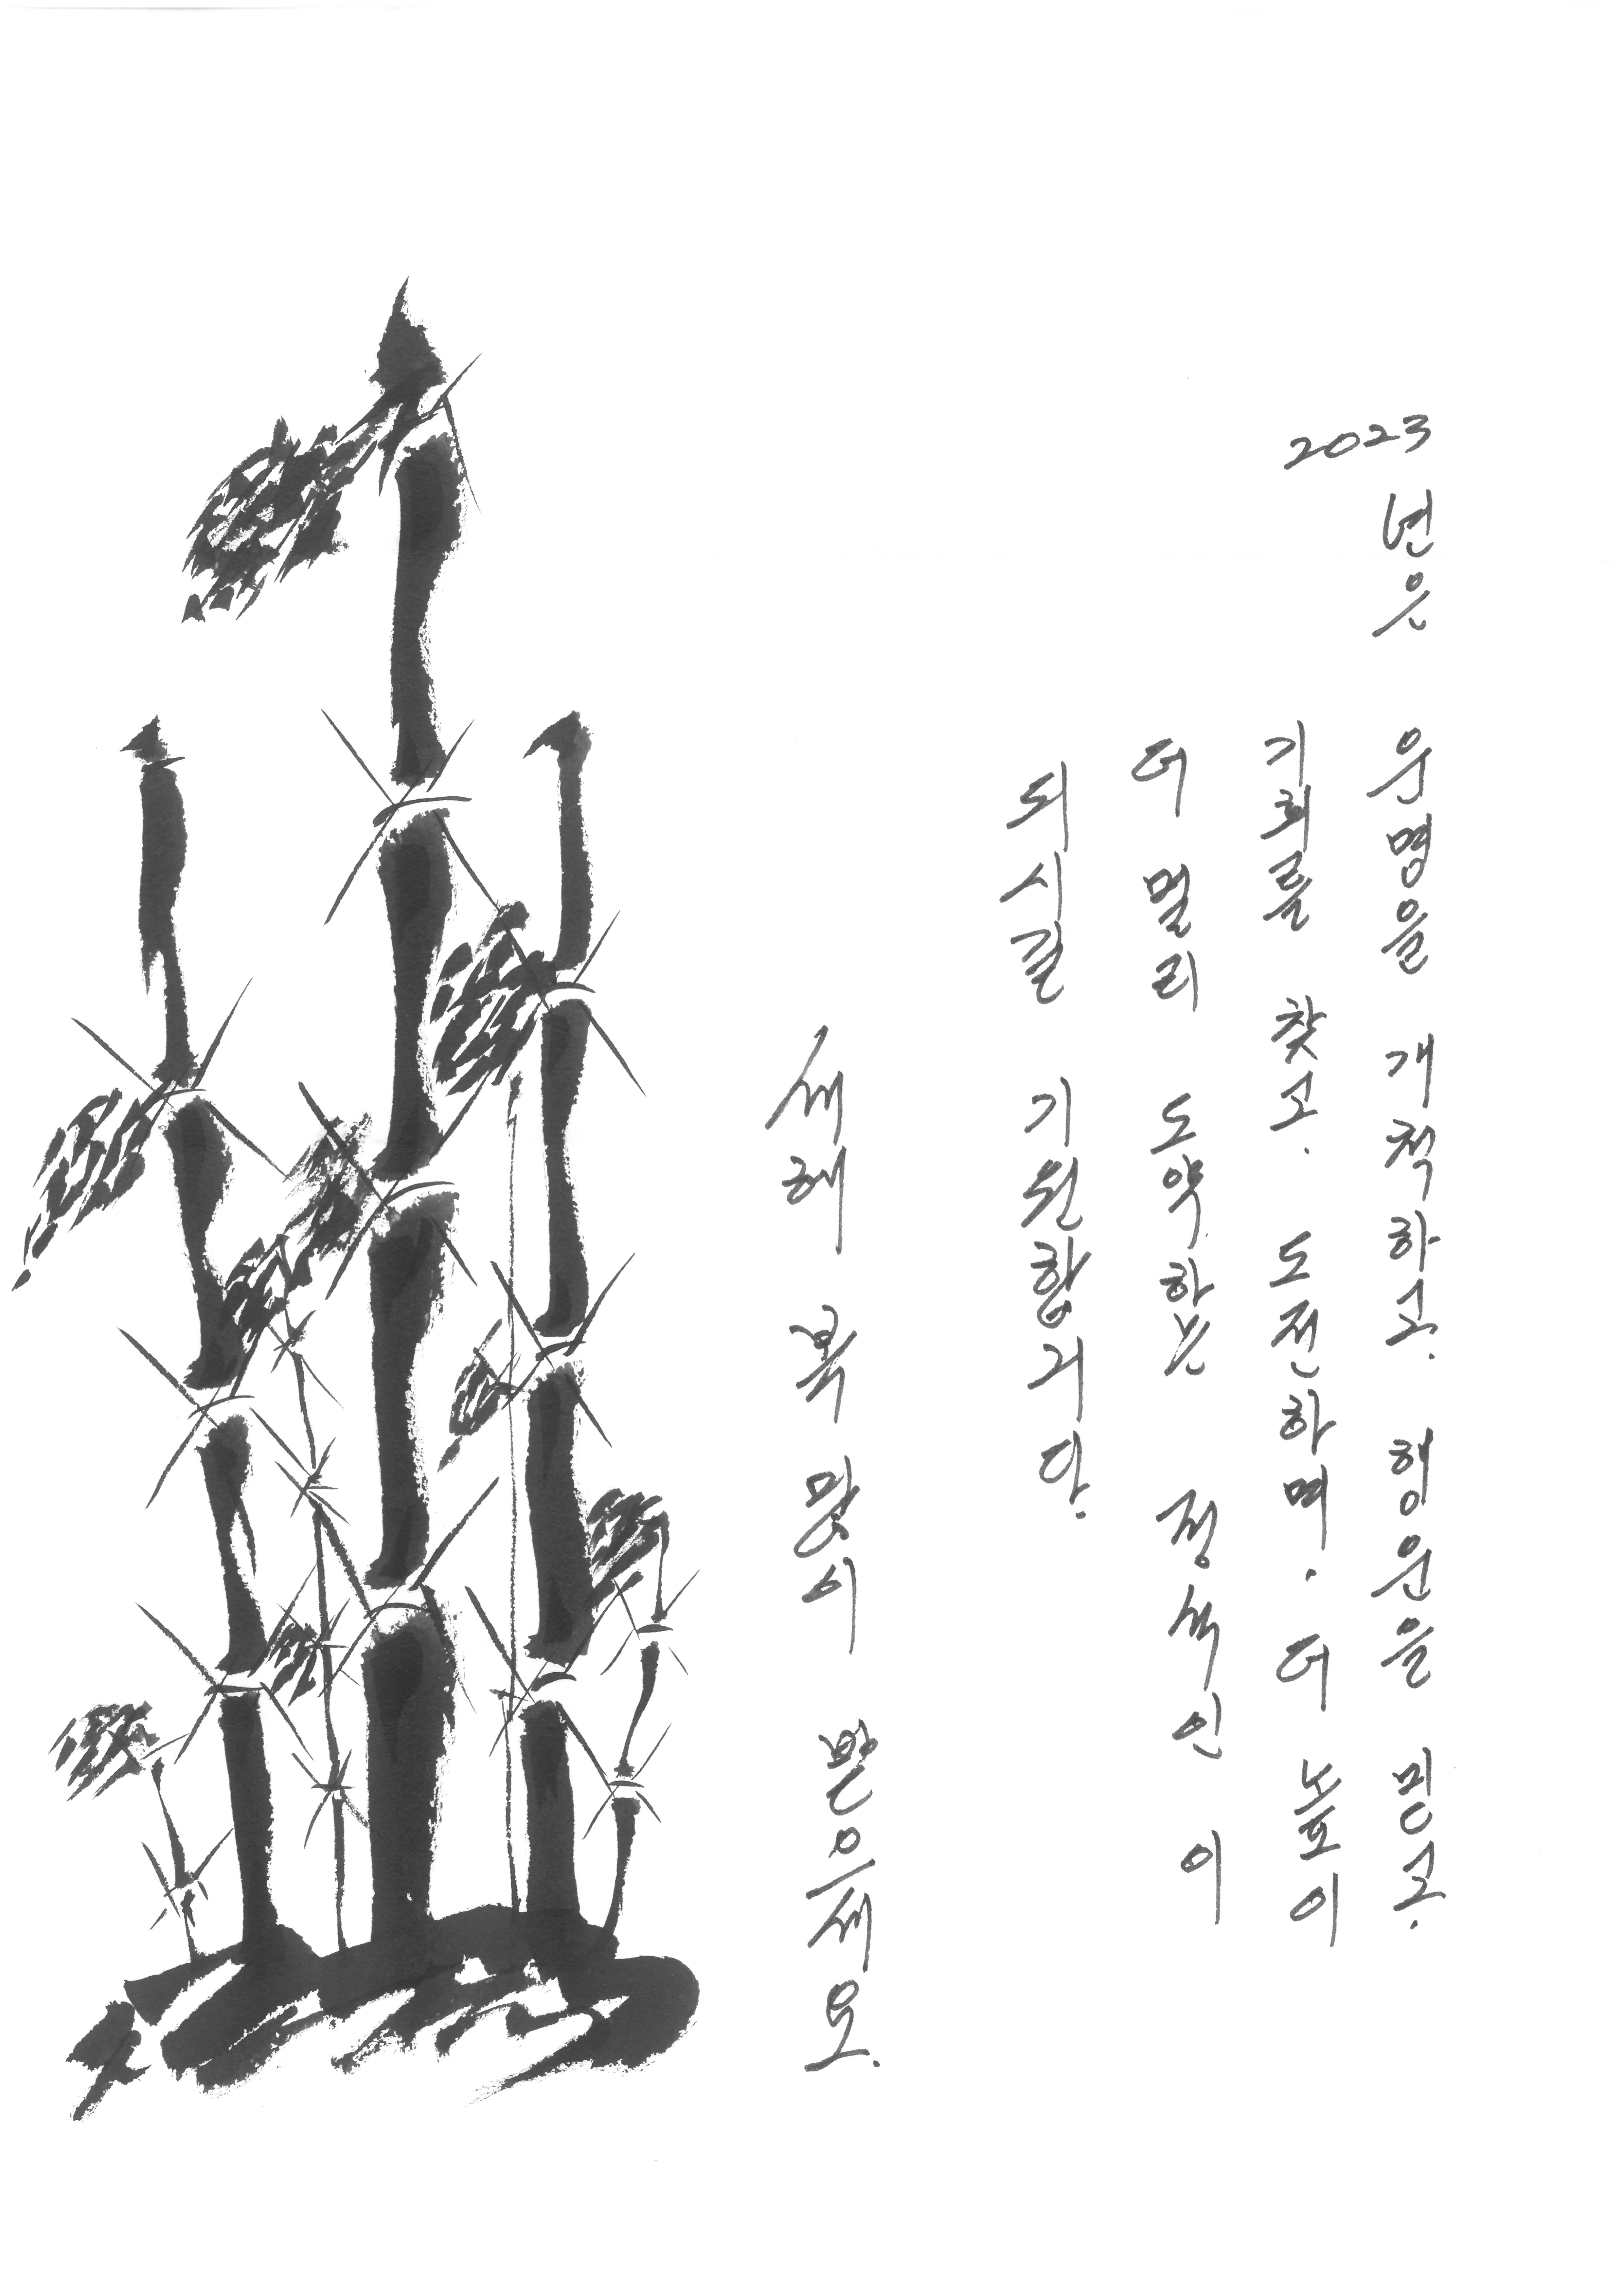 2023 년은 운명을 개척하고. 행운을 믿고.
기회를 찾고. 도전하며. 더 높이
더 멀리 도약하는 정석인 이
되시길 기원합니다.
새해 복 많이 받으세요.